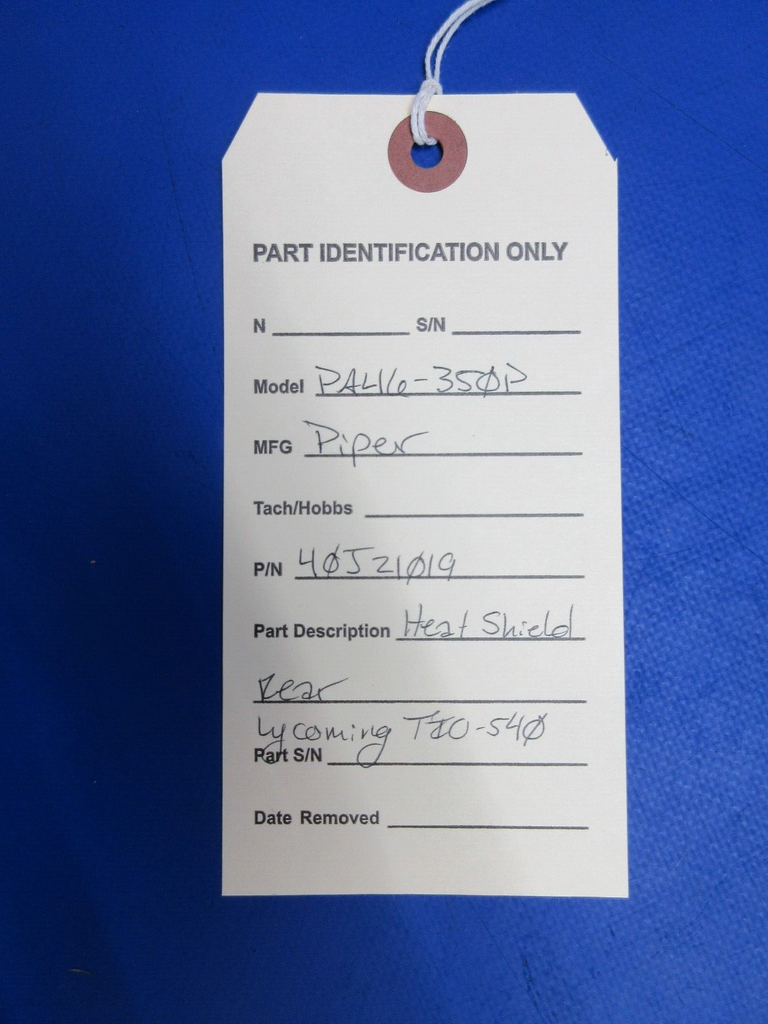 PART IDENTIFICATION ONLY
N S/N
Model PA46-350P
MFG Piper
Tach/Hobbs
P/N 40J21019
Part Description Heat Shield
Rear
Lycoming TIO-540
Part S/N
Date Removed